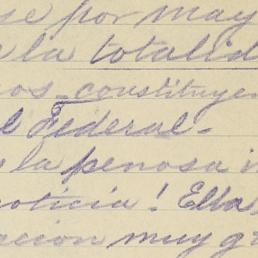 se por may
la totalid
os constituyen
l Federal.
la penosa i
oticia! Ella
acion muy g